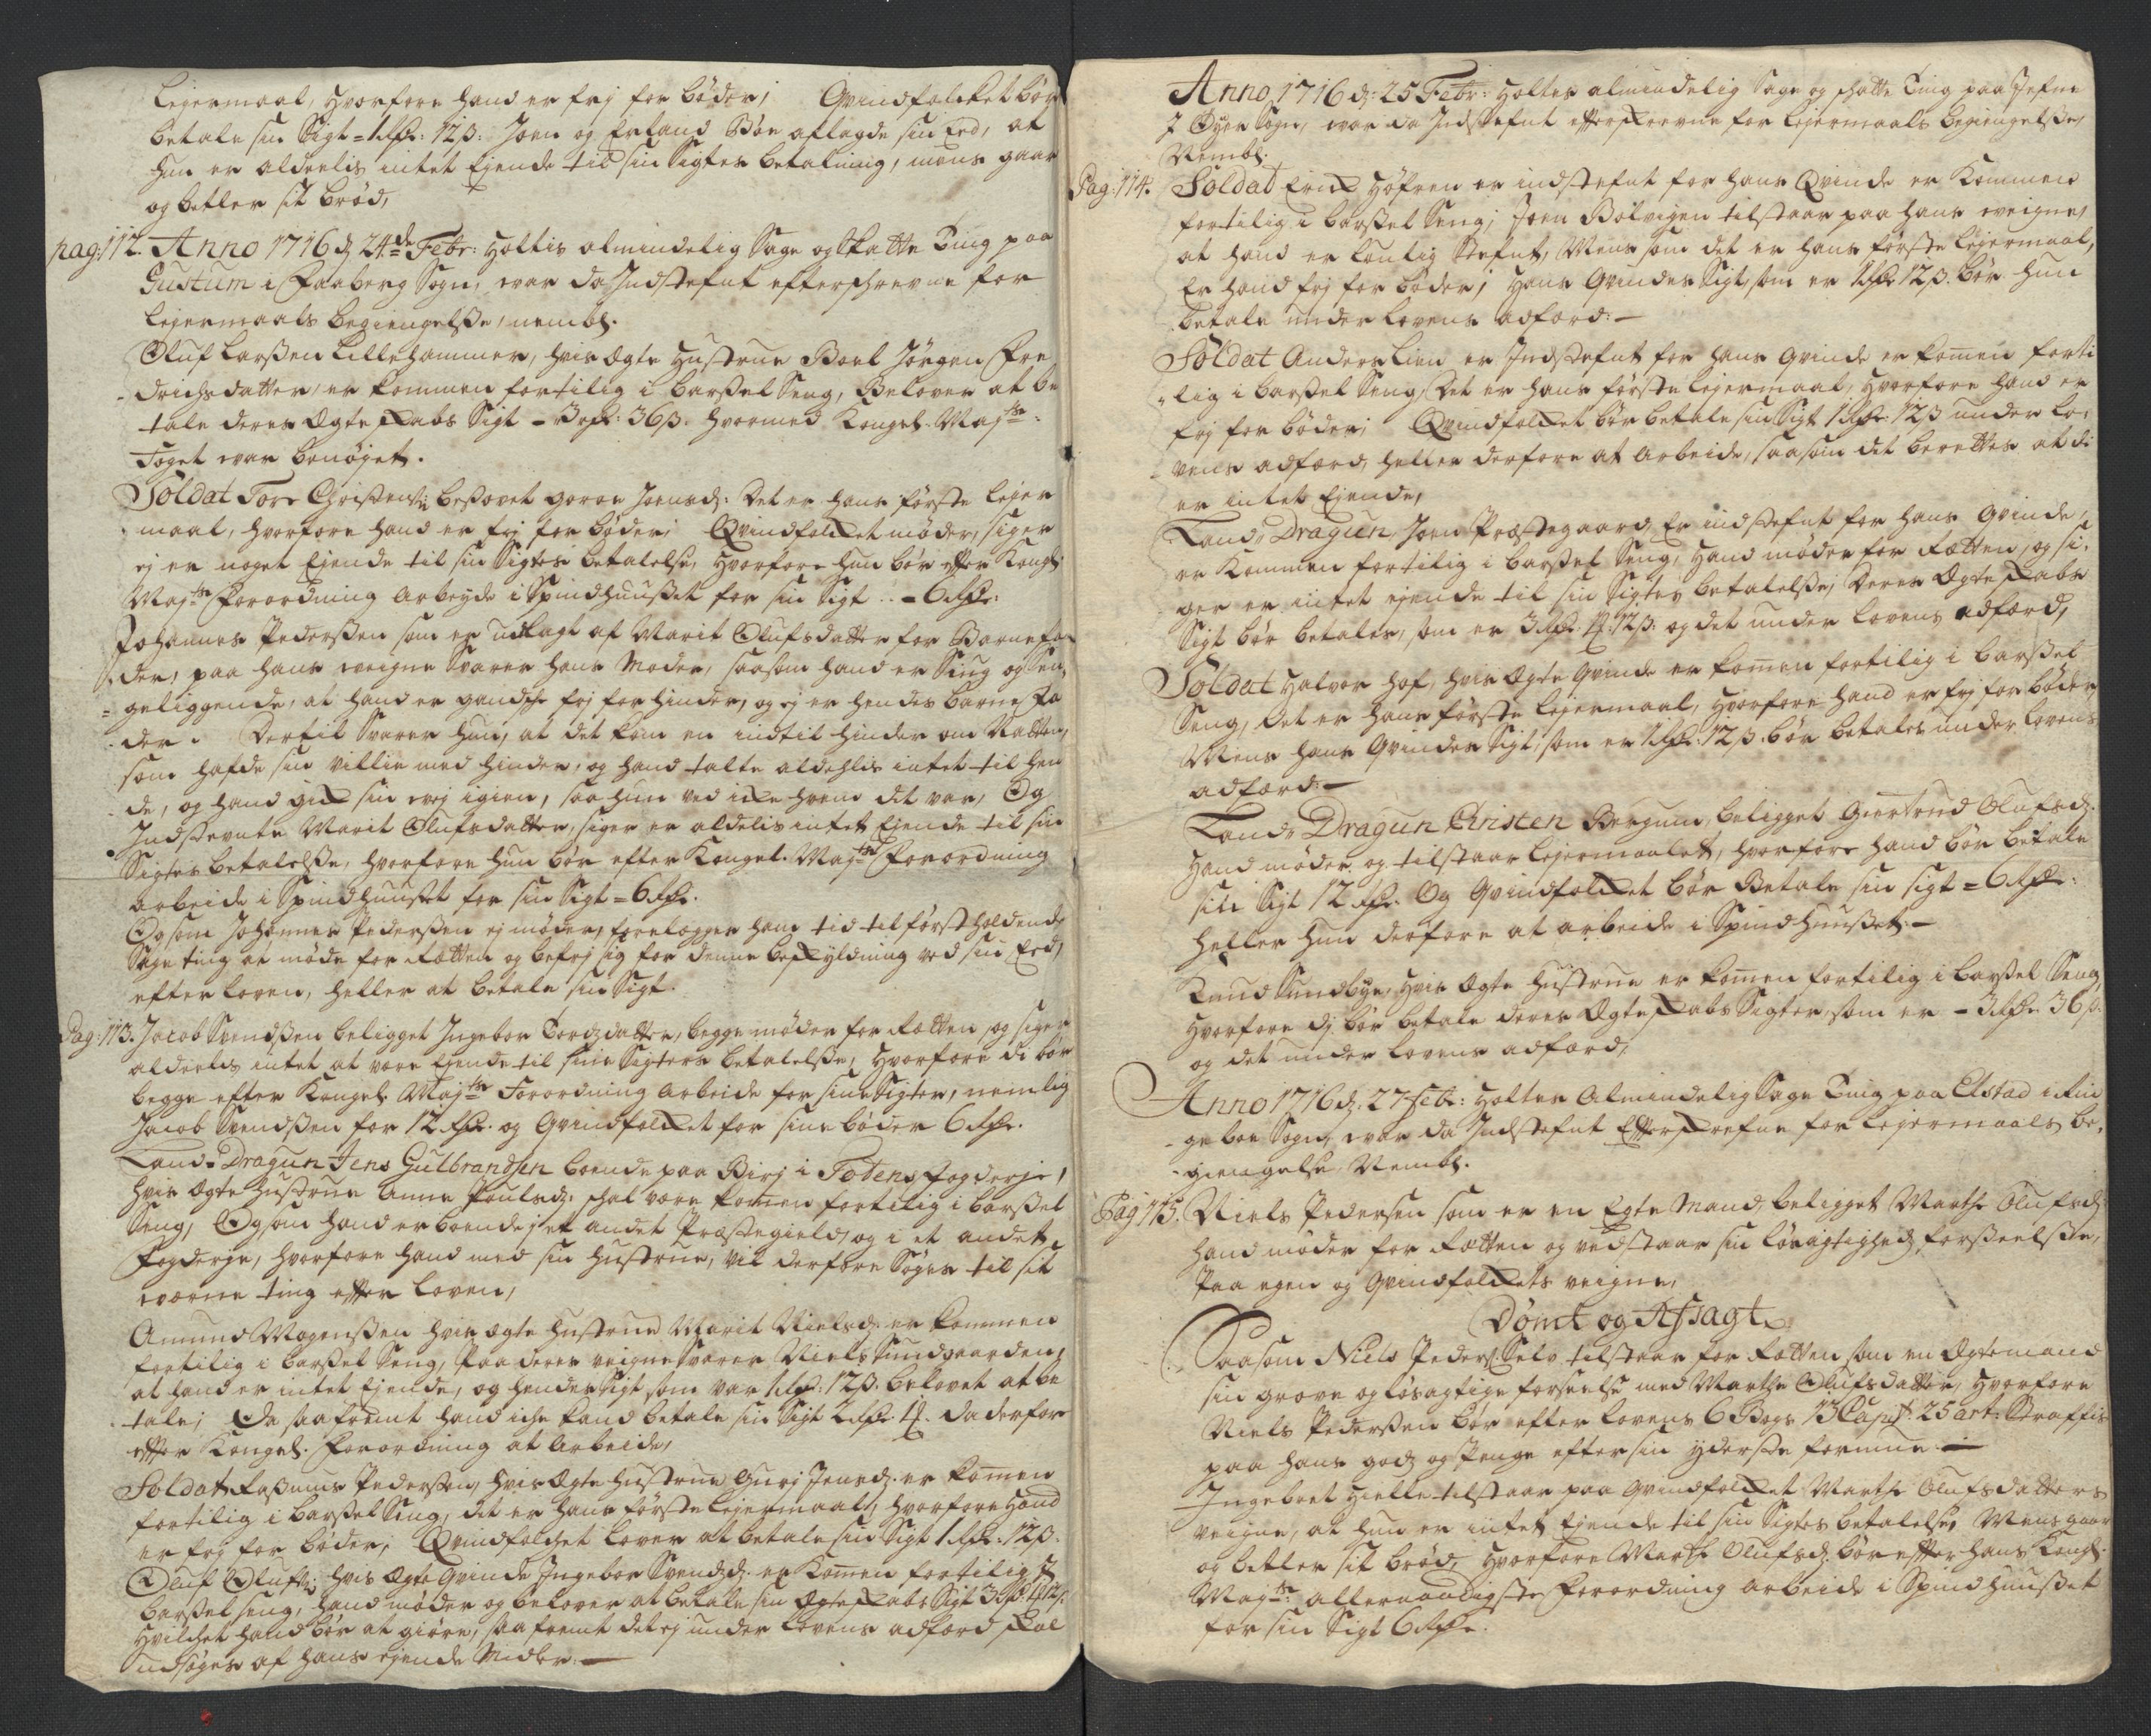 Leyermaal, hvorfore hand er frj for bøder; Qvindfolcket bør
betale sin Sigt = 1 rdr: 12 ß: Joen og Erland Bøe aflagde sin Eed, at
hun er aldeelis intet Ejende til sin Sigtes betalning, mens gaar
og betler sit brød,
pag: 112. Anno 1716 d 24de Febr: Holtis almindelig Sage og Skatte Ting paa
Gustum i Faaberg Sogn, war da Indstefnt efterschrevne for
Leyermaals begiengelsse, nembl.
Oluf Larssen Lillehammer, hvis Ægte Hustrue Boel Jörgen Fre
drichsdatter, er kommen fortilig i barssel Seng, Belover at be
tale deres Ægteskabs Sigt - 3 rdr: 36 ß. hvormed Kongel. Majts
Foget war benöyet.
Soldat Tore Christens: besovet Goroe Joensd: Det er hans förste Leyer
maal, hvorfore hand er frj for bøder; Qvindfolcket møder, siger
ej er noget Ejende til sin Sigtes betalelse, hvorfore hun bør efter Kongl:
Majts Forordning Arbeyde i Spindhuusset for sin Sigt - 6 rdr:
Johannes Pederssen som er udlagt af Marit Olufsdatter for Barnefa
der, paa hans weigne Svarer hans Moder, saasom hand er Siug og Sen
geliggende, at hand er gandsche frj for hinder, og ej er hendes barne fa
der. Dertil Svarer hun, at det kom en indtil hinder om Natten,
som hafde sin villie med hinder, og hand talte aldehlis intet til hen
de, og hand gick sin wej igien, saa hun ved icke hvem det var, Og
Indstevnte Marit Olufsdatter, siger er aldelis intet Ejende til sin
Sigtes betalelsse, hvorfore hun bør efter Kongel. Majts Forordning
arbeide i Spindhuuset for sin Sigt = 6 rdr.
Og som Johannes Pederssen ej møder, forelegges ham tid til först holdende
Sage ting at møde for Rætten og befrj sig for denne beskyldning ved sin Eed,
efter Loven, heller at betale sin Sigt.
Pag: 113. Jacob Svendssen beligget Ingebor Tordzdatter, begge møder for Rætten, og siger
aldeelis intet at vere Ejende til sine Sigters betalelsse, hvorfore di bør
begge efter Kongel. Majts Forordning arbeide for sine Sigter, nemlig
Jacob Svendssen for 12 rdr. og Qvindfolcket for sine bøder 6 rdr.
Land-Dragun Jens Gulbrandsen boende paa Birj i Totens fogderje,
hvis Ægte hustrue Anne Poulsd: schal vere kommen fortilig i barssel
Seng, Og som hand er boende j et andet Præstegield, og i et andet
fogderje, hvorfore hand med sin hustrue, vil derfore Söges til sit
werne ting efter Loven,
Amund Mogenssen hvis ægte hustrue Marit Nielsd: er kommen
fortilig i barssel Seng, Paa deres veigne Svarer Niels Sundgaarden,
at hand er intet Ejende, og hendes Sigt som var 1 rdr: 12 ß. belovet at be
tale; Da saafremt hand iche kand betale sin Sigt 2 rdr. da derfor
efter Kongel. Forordning at Arbeide,
Soldat Rasmus Pederssen, hvis Ægte hustrue Gurj Jensd: er kommen
fortilig i barssel Seng, det er hans förste Leyermaal, hvorfore Hand
er frj for bøder; Qvindfolchet lover at betale sin Sigt 1 rdr: 12 ß.
Oluf Olufs: hvis Ægte Qvinde Ingebor Svendsd. er kommen fortilig J
barssel seng, hand møder og belover at betale sin Ægteskabs Sigt 3 rdr.
hvilchet hand bør at giøre, saa fremt det ej under Lovens adfærd skal
udsøges af hans ejende Midler.
Anno 1716 d: 25 Febr: Holtes almindelig Sage og schatte Ting paa Jefne
J Øyer Sogn, war da Indstefnt efterskrevne for Leyermaals begiengelsse,
Nembl.
Pag: 114. Soldat Erick Høfren er indstefnt for hans Qvinde er Kommen
fortilig i barssel Seng; Joen Bølvigen tilstaar paa hans veigne,
at hand er louglig Stefnt, Mens som det er hans förste Leyermaal,
Er hand frj for bøder; Hans Qvindes Sigt, som er 1 rdr 12 ß. bør hun
betale under Lovens adfærd:
Soldat Anders Lien er Indstefnt for hans Qvinde er kommen forti
lig i barssel Seng, Det er hans förste Leyermaal, hvorfore hand er
frj for bøder; Qvindfolcket bør betale sin Sigt 1 rdr 12 ß under Lo
vens adfærd, heller derfore at Arbeide, saasom det berettes at di
er intet Ejende,
Land-Dragun, Joen Præstegaard, Er indstefnt for hans Qvinde,
er Kommen fortilig i barssel Seng, Hand møder for Rætten, og si
ger er intet ejende til sin Sigtes betalelsse, Deres Ægteskabs
Sigt bør betales, som er 3 rdr. 12 ß. og det under Lovens adfærd,
Soldat Halvor Hof, hvis Ægte Qvinde er kommen fortilig i barssel
Seng, Det er hans förste Leyermaal, hvorfore hand er frj for bøder,
Mens hans Qvindes Sigt, som er 1 rdr: 12 ß. bør betales under Lovens
adfærd:
Land-Dragun Christen Bergum, beligget Giertrud Olufsd.
Hand møder og tilstaar Leyermaalet, hvorfore hand bør betale
sin Sigt 12 rdr. Og Qvindfolcket bør Betale sin sigt = 6 rdr:
heller hun derfore at arbeide i Spindhuusset:
Knud Sundbye, hvis Ægte hustrue er kommen fortilig i barssel Seng,
hvorfore dj bør betale deres Ægteskabs Sigter, som er - 3 rdr. 36 ß:
og det under Lovens adfærd,
Anno 1716 d. 27 Febr: Holtes Almindelig Sage Ting paa Elstad i Rin
geboe Sogn, war da Indstefnt Efterskrefne for Leyermaals be
giengelse Nembl.
Pag 115. Niels Pedersen som er en Egte Mand, beligget Marthe Olufsd:
hand møder for Rætten og vedstaar sin løsagtighed forseelsse,
Paa egen og Qvindfolckets veigne,
Dømt og Afsagt
Saasom Niels Peders: Selv tilstaar for Rætten som en Ægtemand
sin grove og løsagtige forseelse med Marthe Olufsdatter, hvorfore
Niels Pederssen bør efter Lovens 6 Bogs 13 Capit: 25 art: Straffis
paa hans godz og Penge efter sin yderste formue
Ingebret Hielle tilstaar paa Qvindfolcket Marthe Olufsdatters
veigne, at hun er intet Ejende til sin Sigtes betalelse, Mens gaar
og betler sit brød, hvorfore Marthe Olufsd: bør efter hans Kongl.
Majts: allernaadigste Forordning arbeide i Spindhuusset
for sin Sigt 6 rdr.